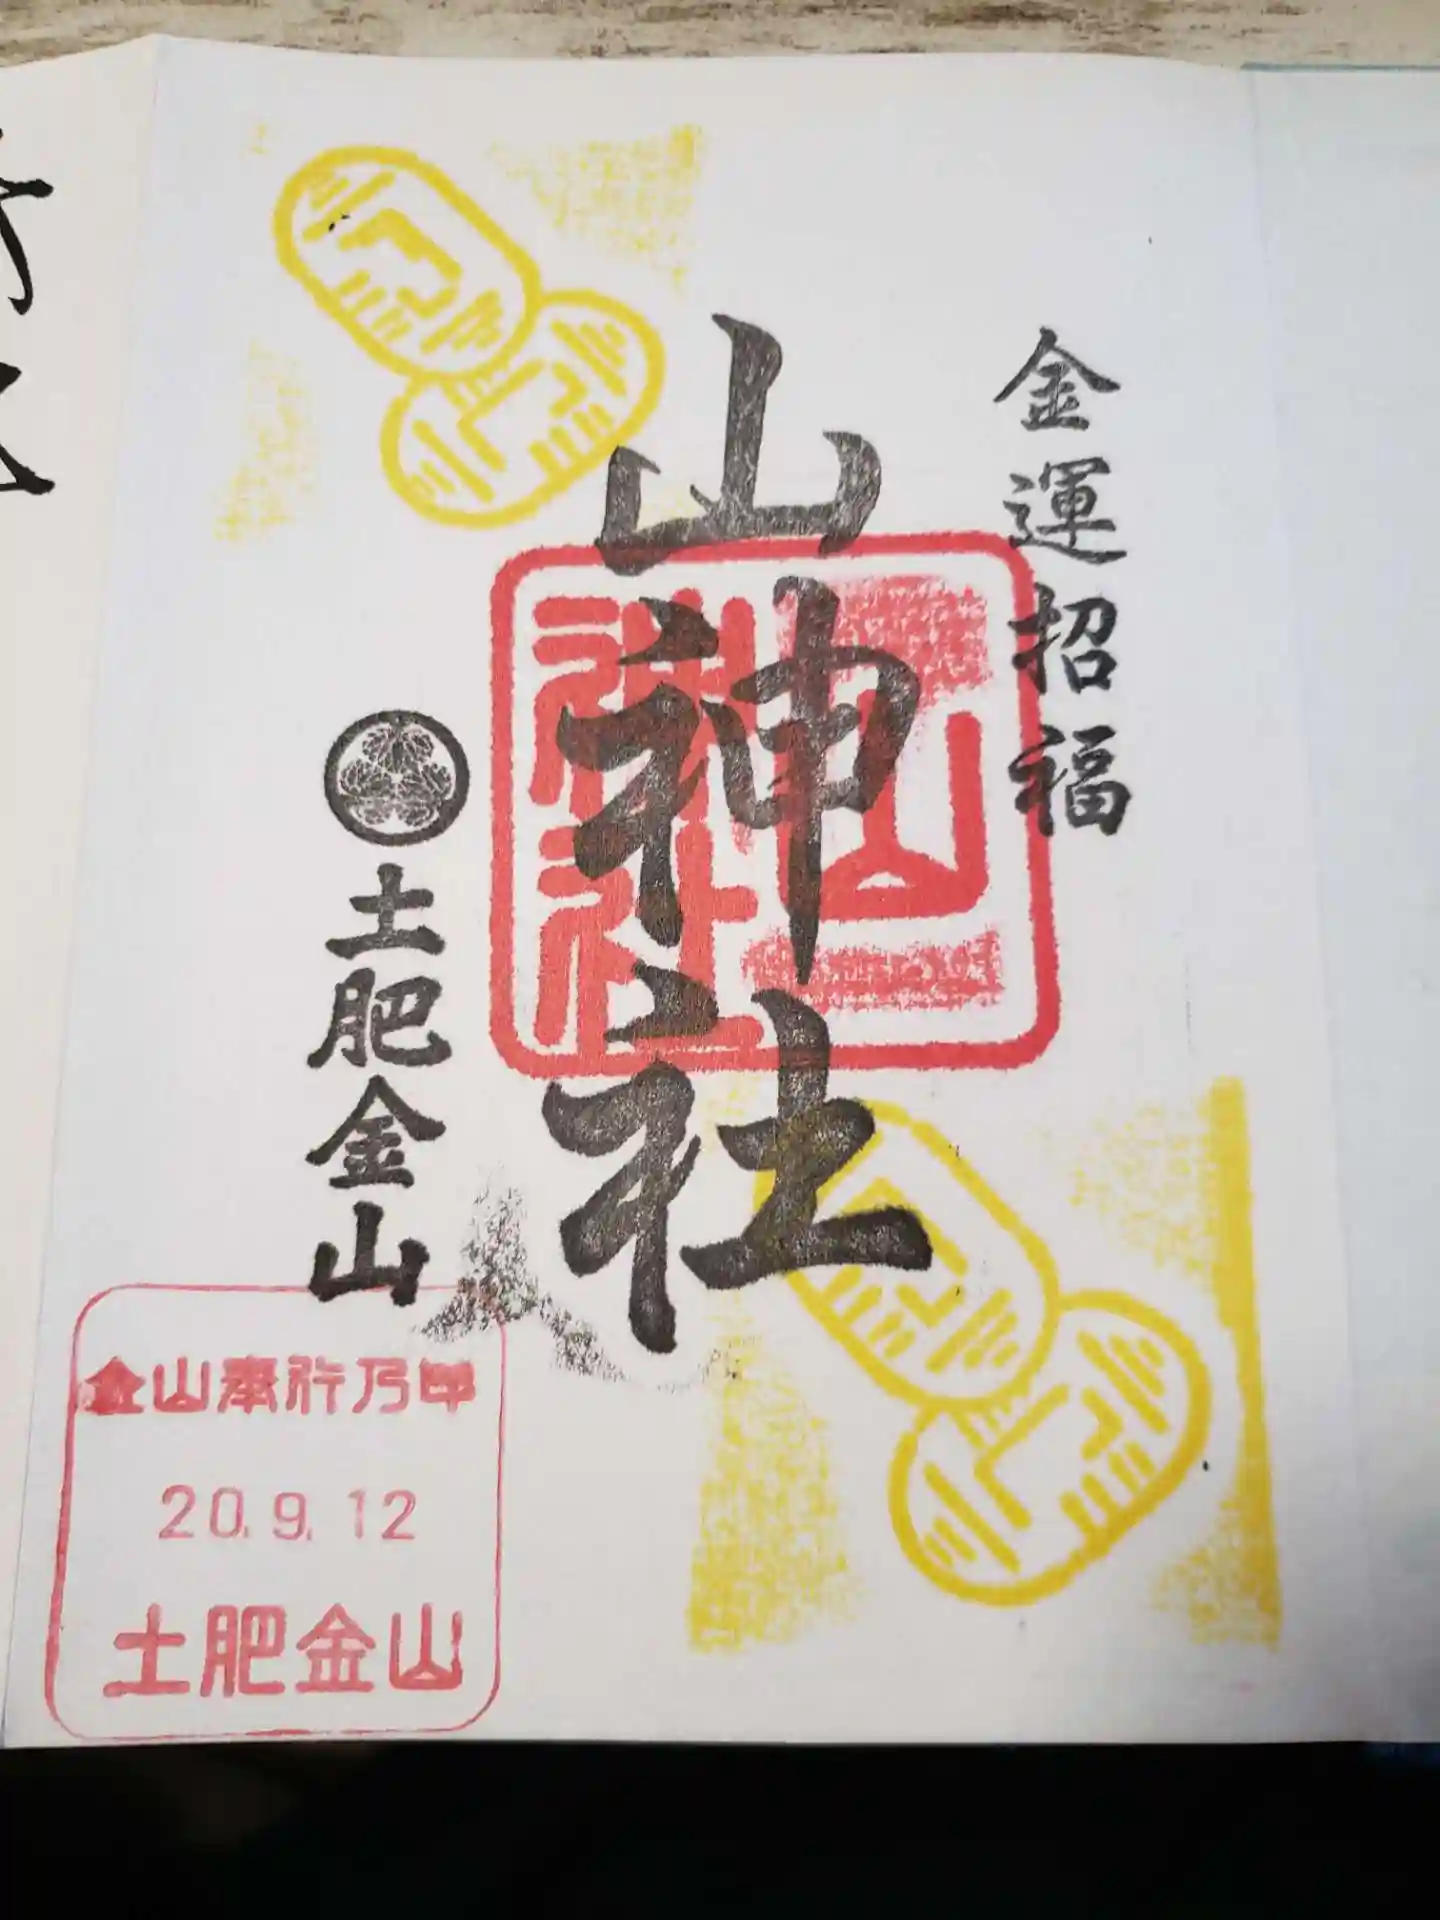 金運招福
山神社
山神社
土肥金山
金山奉行乃印
20.9.12
土肥金山